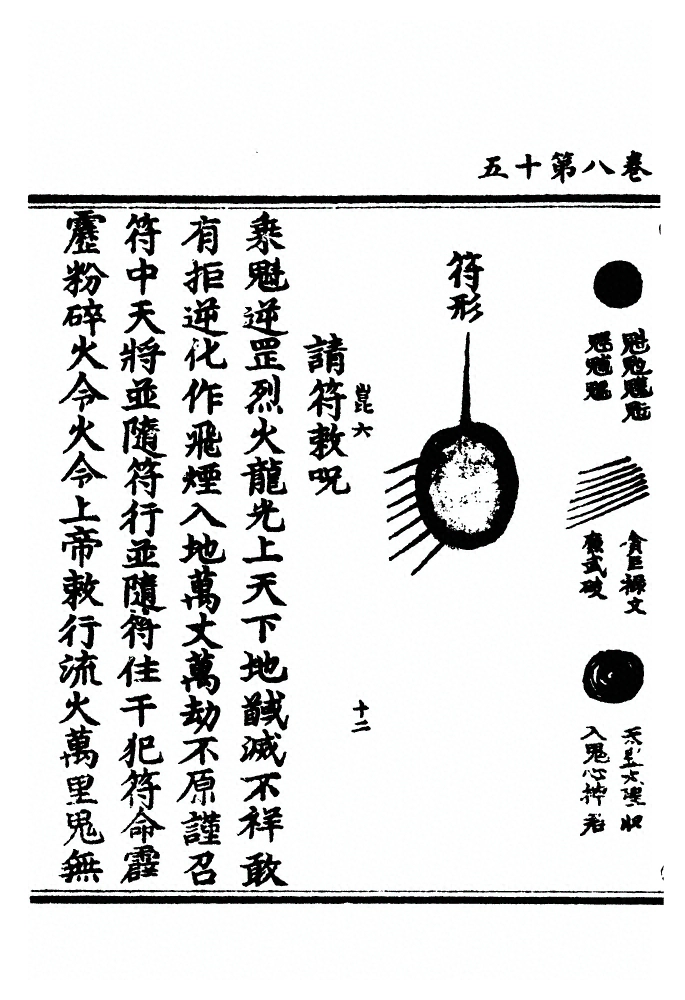 五十第八卷
魁𩲃魓魒
貪巨祿文
廉武破
入鬼心捽者
符形
崑六
十二
請符敕呪
乘魁逆罡烈火龍光上天下地馘滅不祥敢
有拒逆化作飛煙入地萬丈萬劫不原謹召
符中天將並隨符行並隨符住干犯符命霹
靂粉碎火令火令上帝敕行流火萬里鬼無